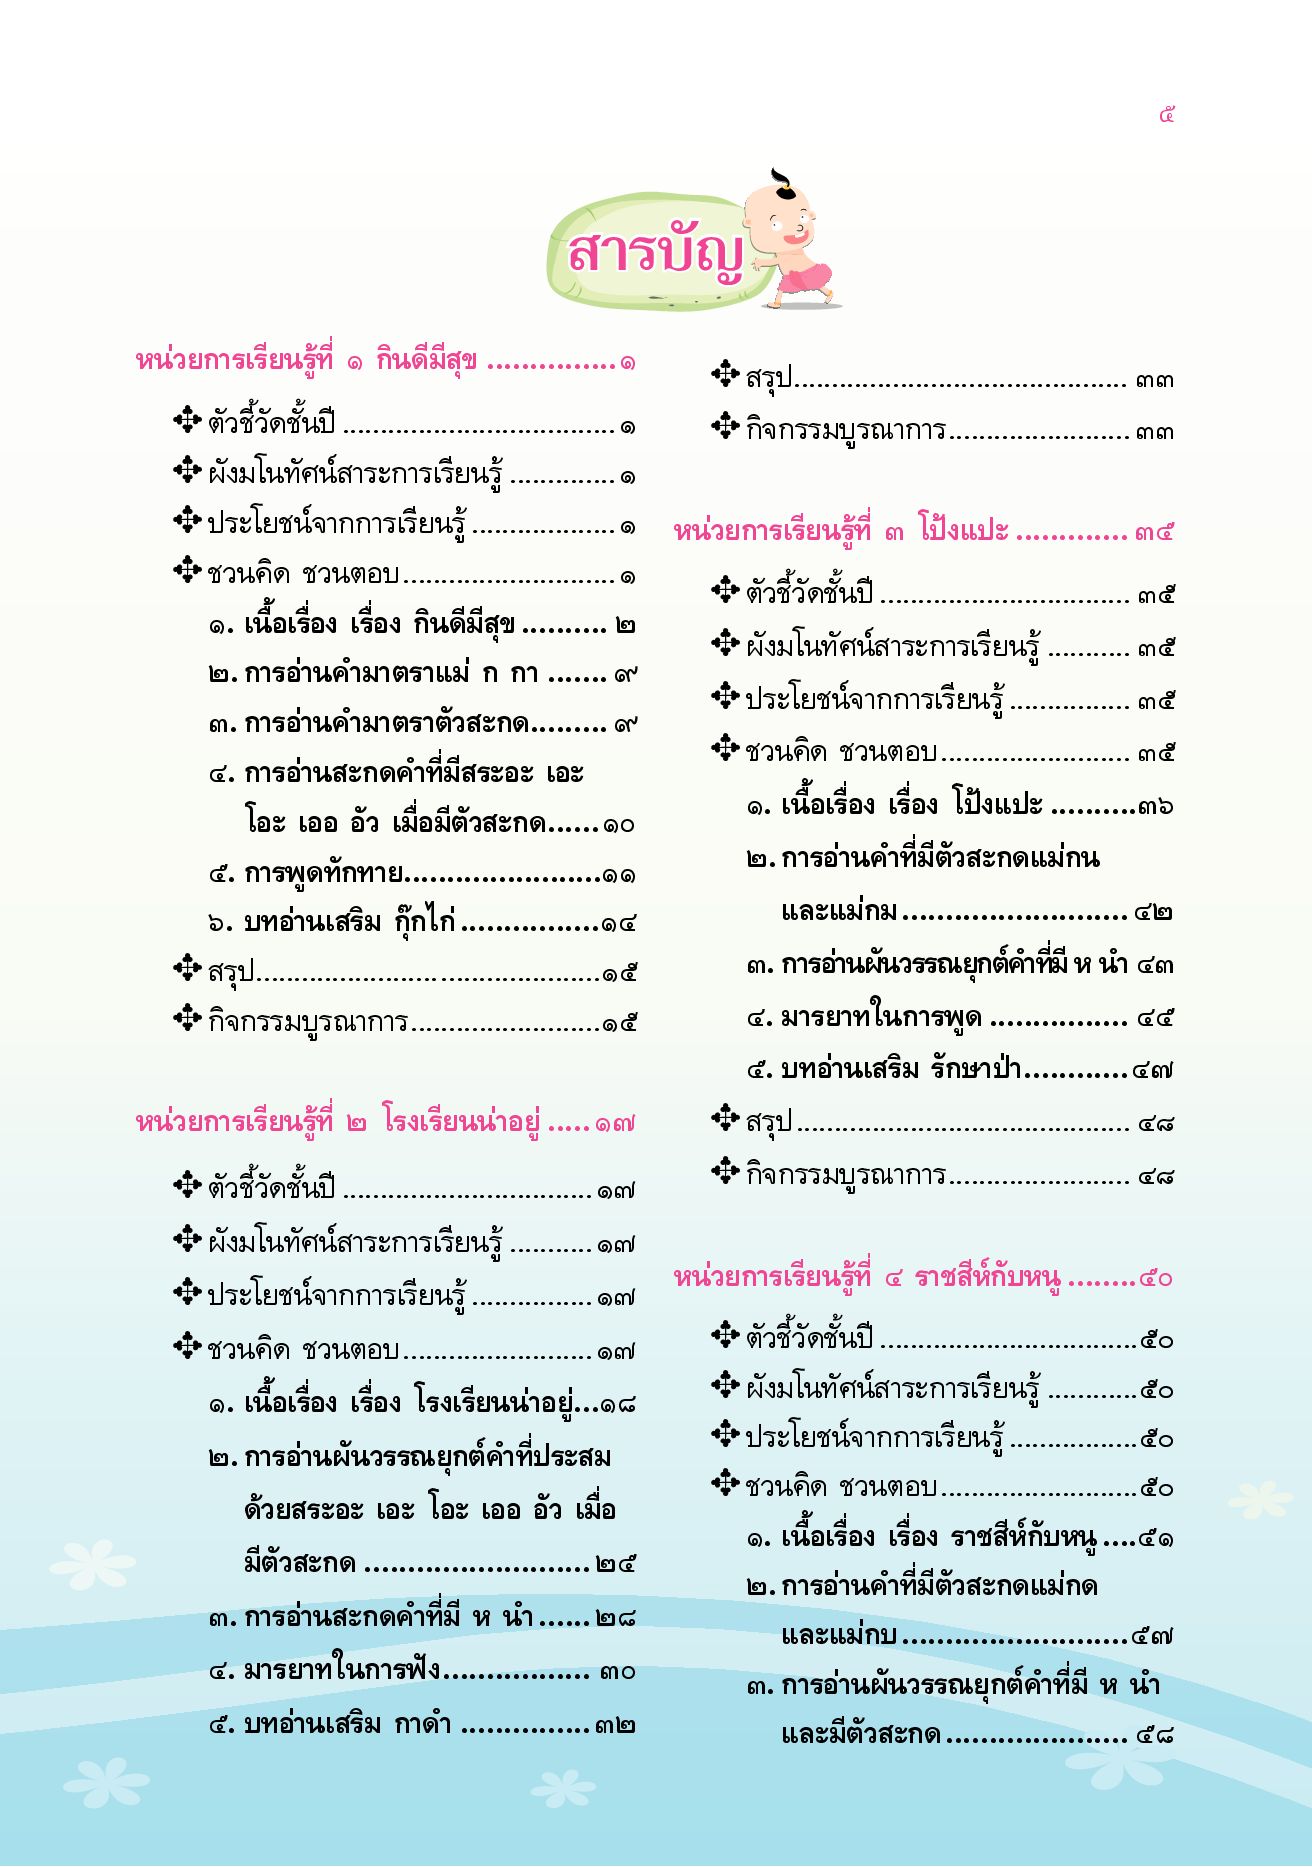 ๕
สารบัญ
หน่วยการเรียนรู้ที่ ๑ กินดีมีสุข ...............๑
ตัวชี้วัดชั้นปี ....................................๑
ผังมโนทัศน์สาระการเรียนรู้ ..............๑
ประโยชน์จากการเรียนรู้ ...................๑
ชวนคิด ชวนตอบ............................๑
๑. เนื้อเรื่อง เรื่อง กินดีมีสุข .......... ๒
๒. การอ่านคำมาตราแม่ ก กา ....... ๙
๓. การอ่านคำมาตราตัวสะกด......... ๙
๔. การอ่านสะกดคำที่มีสระอะ เอะ
โอะ เออ อัว เมื่อมีตัวสะกด......๑๐
๕. การพูดทักทาย.......................๑๑
๖. บทอ่านเสริม กุ๊กไก่ ................๑๔
สรุป..............................................๑๕
กิจกรรมบูรณาการ.........................๑๕
หน่วยการเรียนรู้ที่ ๒ โรงเรียนน่าอยู่ .....๑๗
ตัวชี้วัดชั้นปี .................................๑๗
ผังมโนทัศน์สาระการเรียนรู้ ...........๑๗
ประโยชน์จากการเรียนรู้ ................๑๗
ชวนคิด ชวนตอบ.........................๑๗
๑. เนื้อเรื่อง เรื่อง โรงเรียนน่าอยู่...๑๘
๒. การอ่านผันวรรณยุกต์คำที่ประสม
ด้วยสระอะ เอะ โอะ เออ อัว เมื่อ
มีตัวสะกด ..........................๒๕
๓. การอ่านสะกดคำที่มี ห นำ ......๒๘
๔. มารยาทในการฟัง................. ๓๐
๕. บทอ่านเสริม กาดำ ...............๓๒
สรุป............................................ ๓๓
กิจกรรมบูรณาการ........................ ๓๓
หน่วยการเรียนรู้ที่ ๓ โป้งแปะ ............. ๓๕
ตัวชี้วัดชั้นปี ................................. ๓๕
ผังมโนทัศน์สาระการเรียนรู้ ........... ๓๕
ประโยชน์จากการเรียนรู้ ................ ๓๕
ชวนคิด ชวนตอบ......................... ๓๕
๑. เนื้อเรื่อง เรื่อง โป้งแปะ ..........๓๖
๒. การอ่านคำที่มีตัวสะกดแม่กน
และแม่กม .......................... ๔๒
๓. การอ่านผันวรรณยุกต์คำที่มี ห นำ ๔๓
๔. มารยาทในการพูด ................ ๔๕
๕. บทอ่านเสริม รักษาป่า............๔๗
สรุป ............................................ ๔๘
กิจกรรมบูรณาการ........................ ๔๘
หน่วยการเรียนรู้ที่ ๔ ราชสีห์กับหนู ........๕๐
ตัวชี้วัดชั้นปี ..................................๕๐
ผังมโนทัศน์สาระการเรียนรู้ ............๕๐
ประโยชน์จากการเรียนรู้ .................๕๐
ชวนคิด ชวนตอบ..........................๕๐
๑. เนื้อเรื่อง เรื่อง ราชสีห์กับหนู ....๕๑
๒. การอ่านคำที่มีตัวสะกดแม่กด
และแม่กบ ..........................๕๗
๓. การอ่านผันวรรณยุกต์คำที่มี ห นำ
และมีตัวสะกด ..................... ๕๘